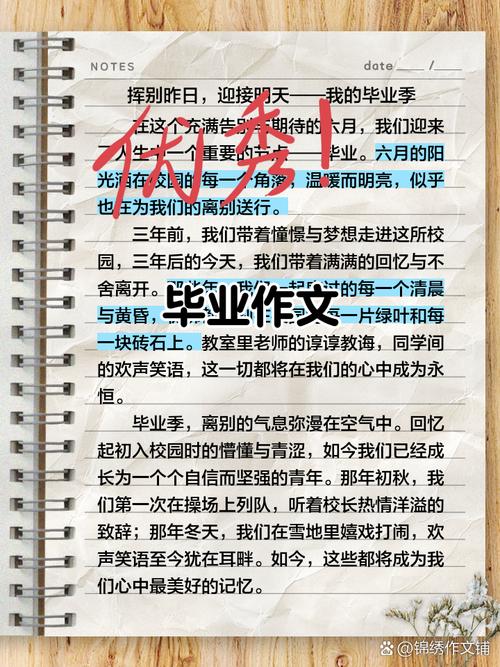 NOTES
date ___ / ___
挥别昨日，迎接明天——我的毕业季
在这个充满告别与期待的六月，我们迎来
了人生 一个重要的节点——毕业。六月的阳
光洒在校园的每一个角落，温暖而明亮，似乎
也在为我们的离别送行。
优秀！
三年前，我们带着憧憬与梦想走进这所校
园，三年后的今天，我们带着满满的回忆与不
舍离开。 我们一起 过的每一个清晨
与黄昏， 一片绿叶和每
毕业作文
一块砖石上。教室里老师的谆谆教诲，同学间
的欢声笑语，这一切都将在我们的心中成为永
恒。
毕业季，离别的气息弥漫在空气中。回忆
起初入校园时的懵懂与青涩，如今我们已经成
长为一个个自信而坚强的青年。那年初秋，我
们第一次在操场上列队，听着校长热情洋溢的
致辞；那年冬天，我们在雪地里嬉戏打闹，欢
声笑语至今犹在耳畔。如今，这些都将成为我
们心中最美好的记忆。
锦绣作文铺